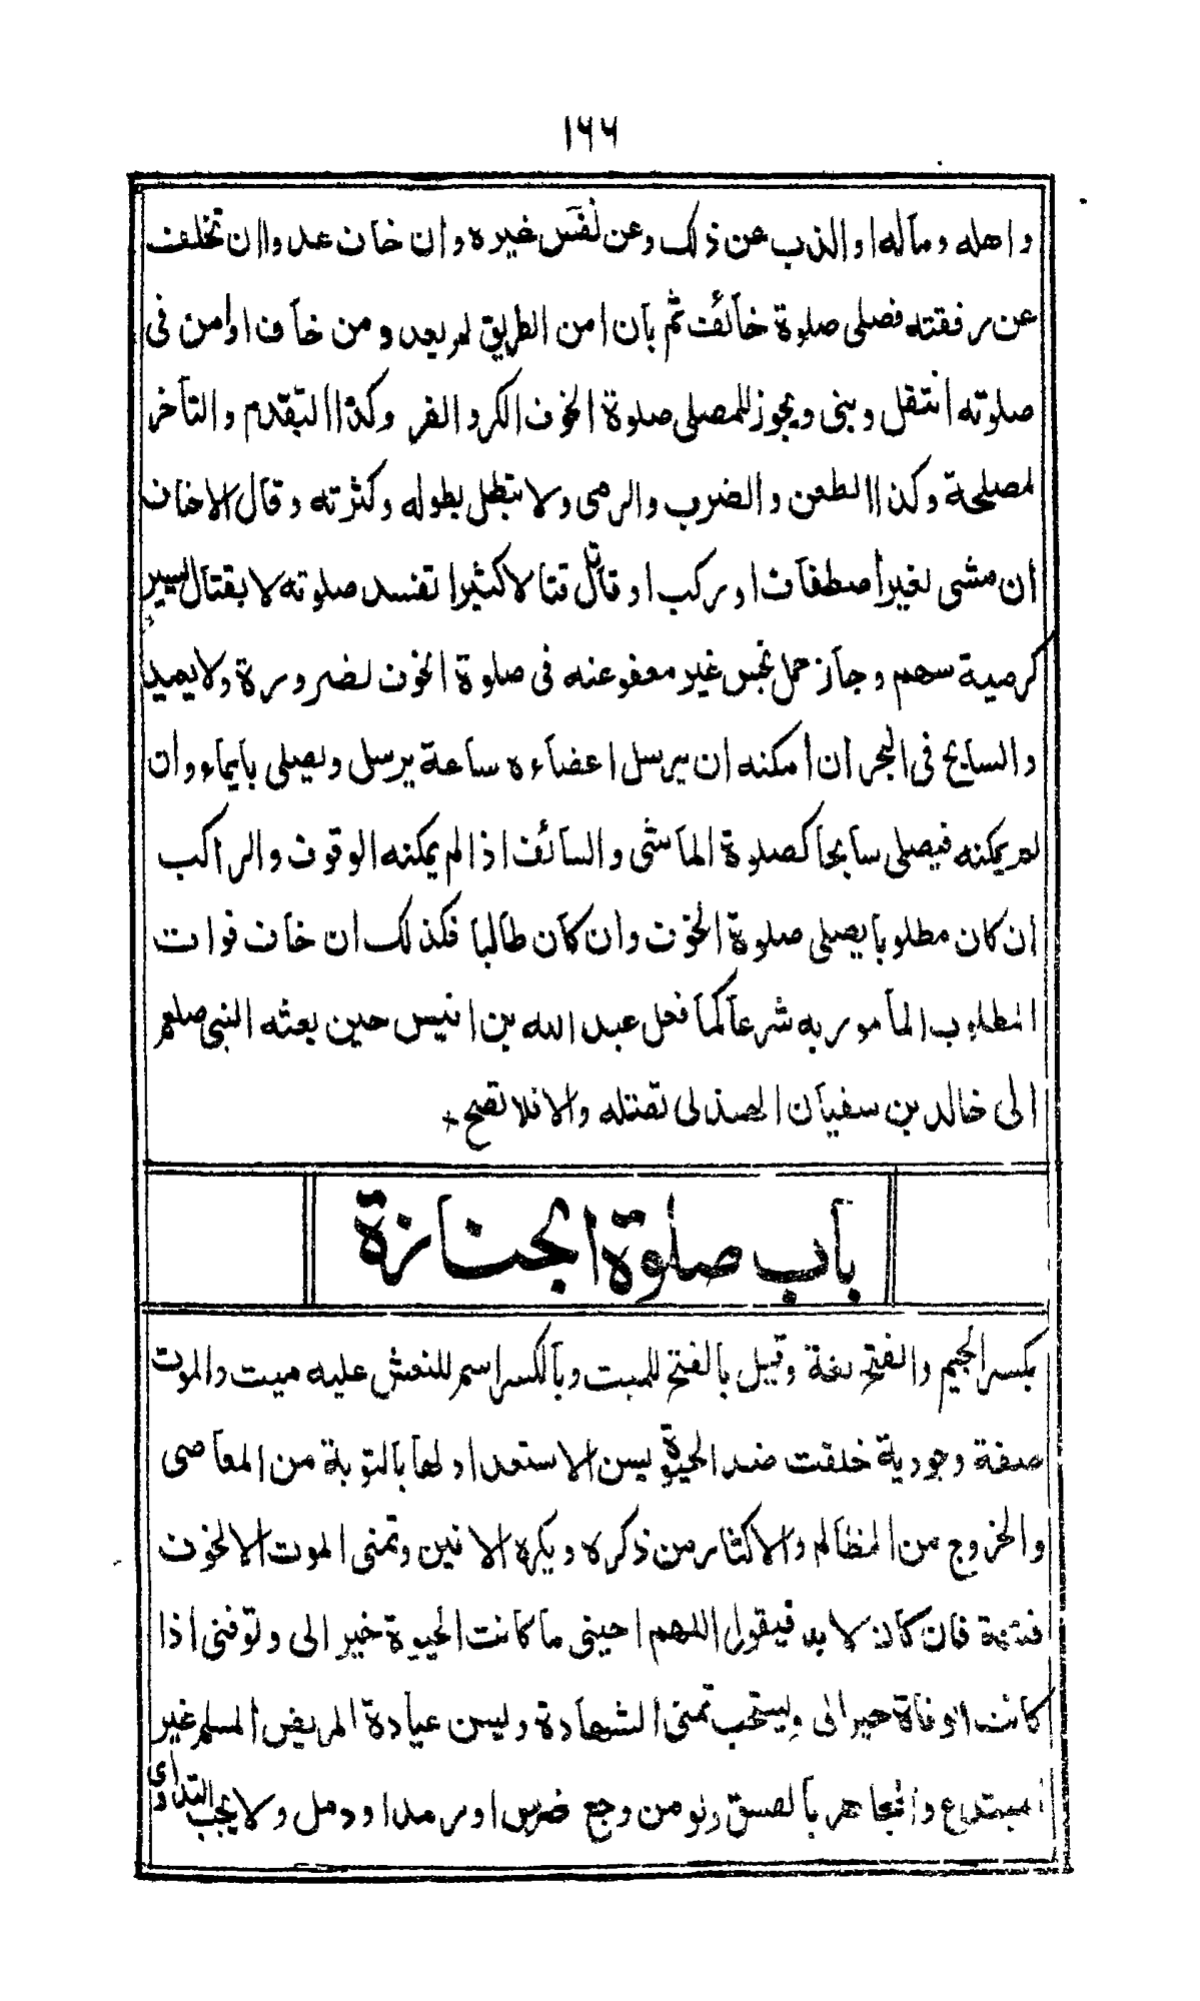 ١٦٦
واهله وماله او الذب عن ذلك وعن نفس غيره وان خاف عدوا ان تخلف
عن رفقته فصلى صلوة خائف ثم بان امن الطريق لم يعد ومن خاف او امن فى
صلوته انتقل وبنى ويجوز للمصلى صلوة الخوف الكر والفر وكذا التقدم والتأخر
لمصلحة وكذا الطعن والضرب والرمى ولا تبطل بطوله وكثرته وقال الاحناف
ان مشى لغير اصطفاف او ركب او قاتل قتالا كثيرا تفسد صلوته لا بقتال يسير
كرمية سهم وجاز حمل نجس غير معفو عنه فى صلوة الخوف لضرورة ولا يعيد
والسابح فى البحر ان امكنه ان يرسل اعضاءه ساعة يرسل ويصلى بايماء وان
لم يمكنه فيصلى سابحا كصلوة الماشى والسائف اذا لم يمكنه الوقوف والراكب
ان كان مطلوبا يصلى صلوة الخوف وان كان طالبا فكذلك ان خاف فوات
المطلوب المأمور به شرعا كما فعل عبد الله بن انيس حين بعثه النبى صلعم
الى خالد بن سفيان الهذلى لقتله والا فلا تصح
باب صلوة الجنازة
بكسر الجيم والفتح لغة وقيل بالفتح للميت وبالكسر اسم للنعش عليه ميت والموت
صفة وجودية خلقت ضد الحيوة يسن الاستعداد لها بالتوبة من المعاصى
والخروج من المظالم والاكثار من ذكره ويكره الانين وتمنى الموت الا لخوف
فتنة فان كان لا بد فيقول اللهم احينى ما كانت الحيوة خير الى وتوفنى اذا
كانت الوفاة خير الى ويستحب تمنى الشهادة ويسن عيادة المريض المسلم غير
المبتدع والمجاهر بالفسق ولو من وجع ضرس او رمد او دمل ولا يجب التداوى